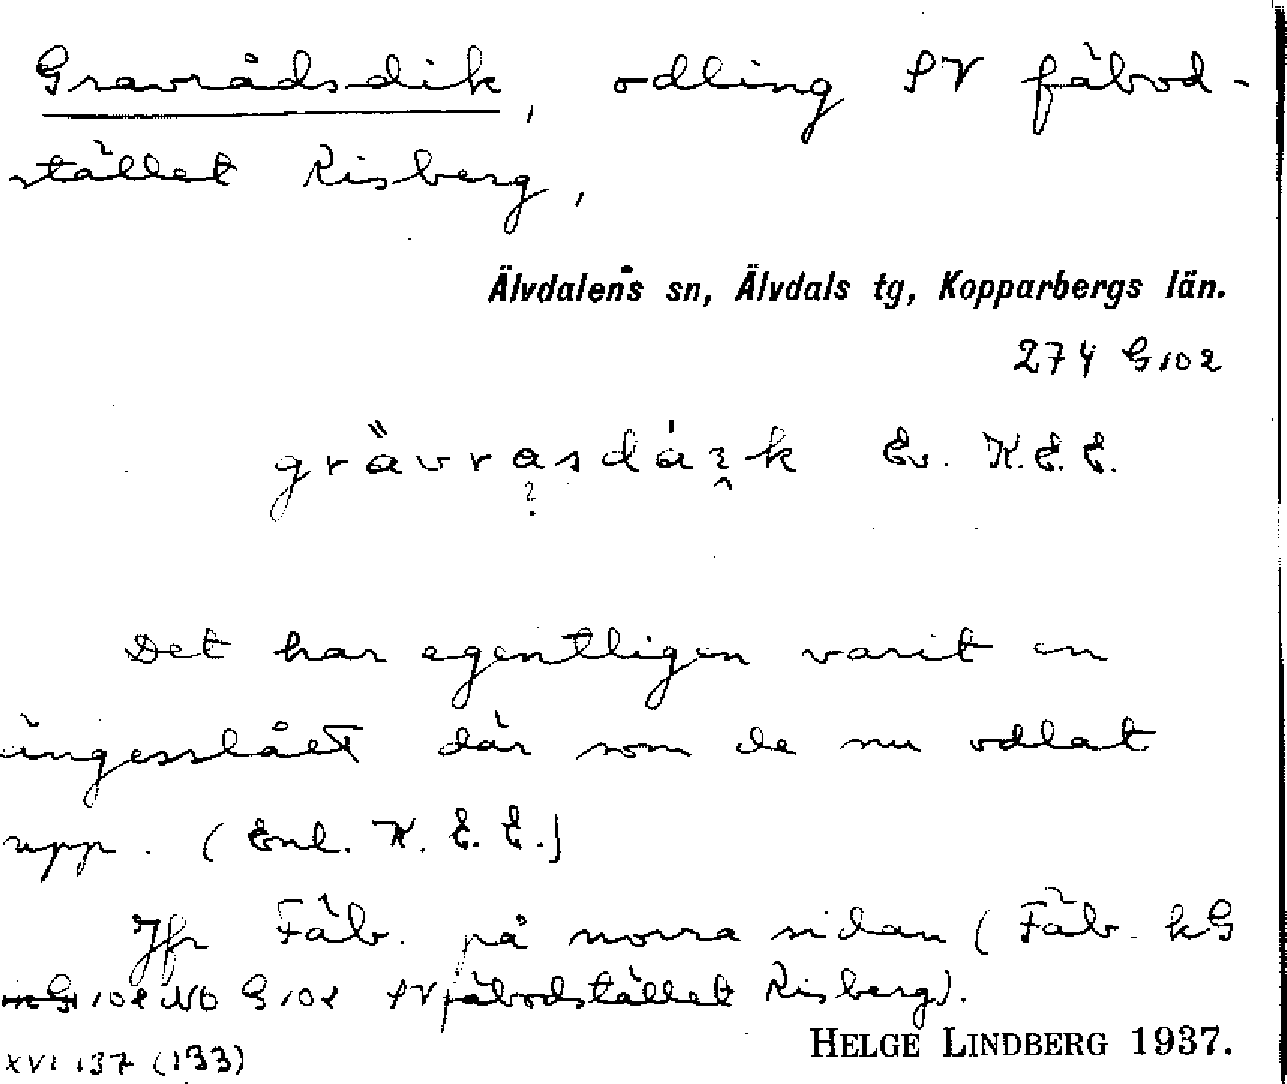 Gravrådsdik, odling SV fäbod-
stället Risberg,
Älvdalens sn, Älvdals tg, Kopparbergs län.
274 G102
Ev. K.E.E.
Det har egentligen varit en
ängesslået där som de nu odlat
upp. (Enl. K.E.E.)
Jfr Fäb. på norra sidan (Fäb. kG
102 NO G102 SV fäbodstället Risberg).
HELGE LINDBERG 1937.
XVI 137 (133)